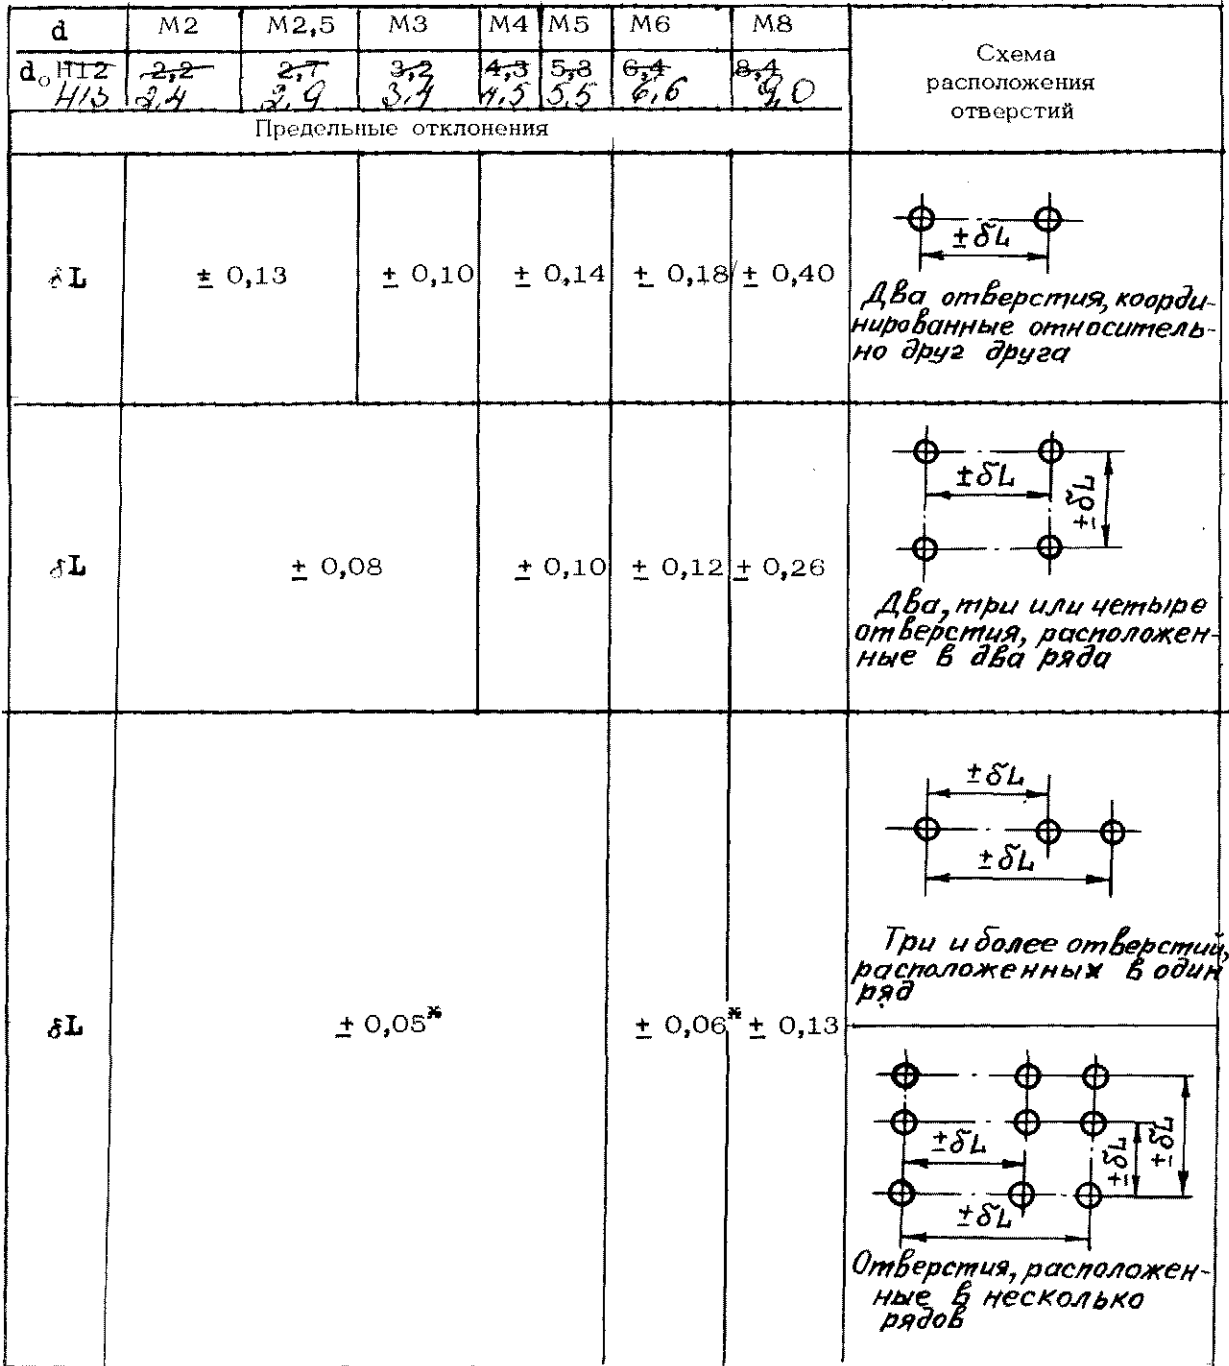 d M2 M2,5 M3 M4 M5 M6 M8
Схема
расположения
отверстий
d₀ H12 2,2 2,7 3,2 4,3 5,3 6,4 8,4
H13 2,4 2,9 3,4 4,5 5,5 6,6 9,0
Предельные отклонения
δL ± 0,13 ± 0,10 ± 0,14 ± 0,18 ± 0,40
±δL
Два отверстия, коорди-
нированные относитель-
но друг друга
δL ± 0,08 ± 0,10 ± 0,12 ± 0,26
±δL
±δL
Два, три или четыре
отверстия, расположен-
ные в два ряда
δL ± 0,05* ± 0,06* ± 0,13
±δL
±δL
Три и более отверстий,
расположенных в один
ряд
±δL
±δL
±δL
±δL
Отверстия, расположен-
ные в несколько
рядов